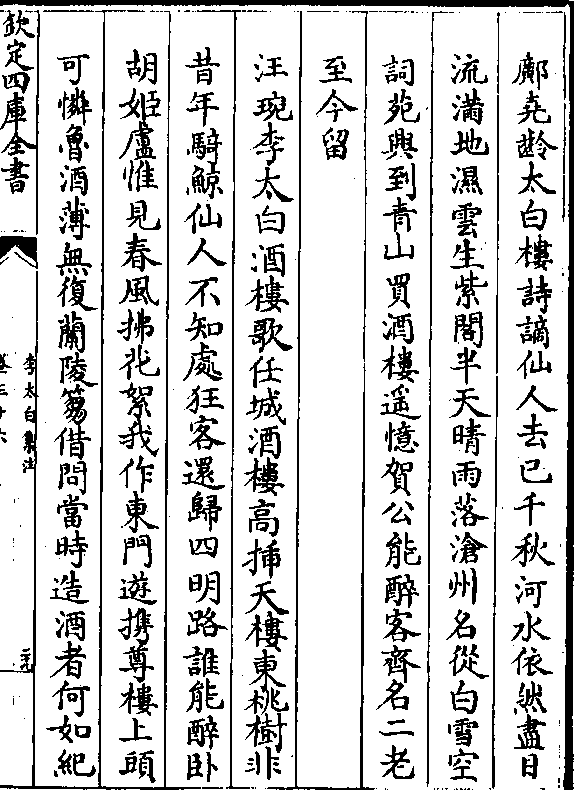 鄺堯齡太白樓詩謫仙人去已千秋河水依然盡日
流滿地濕雲生紫閣半天晴雨落滄州名從白雪空
詞苑興到青山買酒樓遥憶賀公能醉客齊名二老
至今留
汪琬李太白酒樓歌任城酒樓高揷天樓東桃樹非
昔年騎鯨仙人不知處狂客還歸四明路誰能醉卧
胡姬盧惟見春風拂花絮我作東門遊携尊樓上頭
可憐魯酒薄無復蘭陵篘借問當時造酒者何如紀
欽定四庫全書
李太白集注
卷三十六